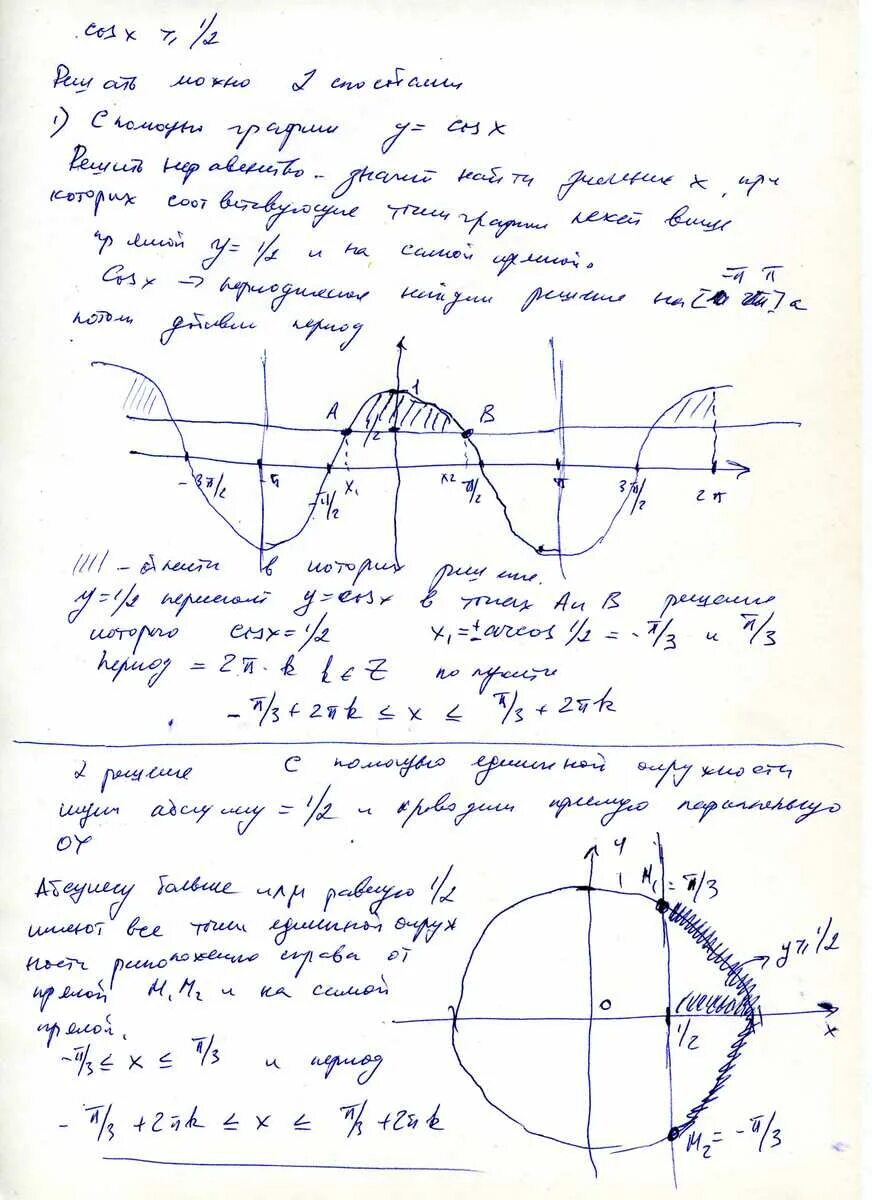 cos x ≥ 1/2
Решать можно 2 способами
1) С помощью графика y = cos x
Решить неравенство - значит найти значения x, при
которых соответствующие точки графика лежат выше
прямой y = 1/2 и на самой прямой.
Cos x → периодическая найдем решение на [-π π] а
потом добавим период
1
A
1/2
B
-3π/2
-π
-π/2
x1
x2
π/2
π
3π/2
2π
- области в которых решение.
y = 1/2 пересекает y = cos x в точках A и B решение
которого cos x = 1/2 x1 = ± arccos 1/2 = -π/3 и π/3
Период = 2π · k k ∈ Z получите
-π/3 + 2πk ≤ x ≤ π/3 + 2πk
2 решение С помощью единичной окружности
ищем абсциссу = 1/2 и проводим прямую параллельную
OY
Абсциссу больше или равную 1/2
имеют все точки единичной окруж
ности расположено справа от
прямой M1M2 и на самой
прямой.
-π/3 ≤ x ≤ π/3 и период
-π/3 + 2πk ≤ x ≤ π/3 + 2πk
y
1
M1 = π/3
y ≥ 1/2
0
1/2
x
M2 = -π/3